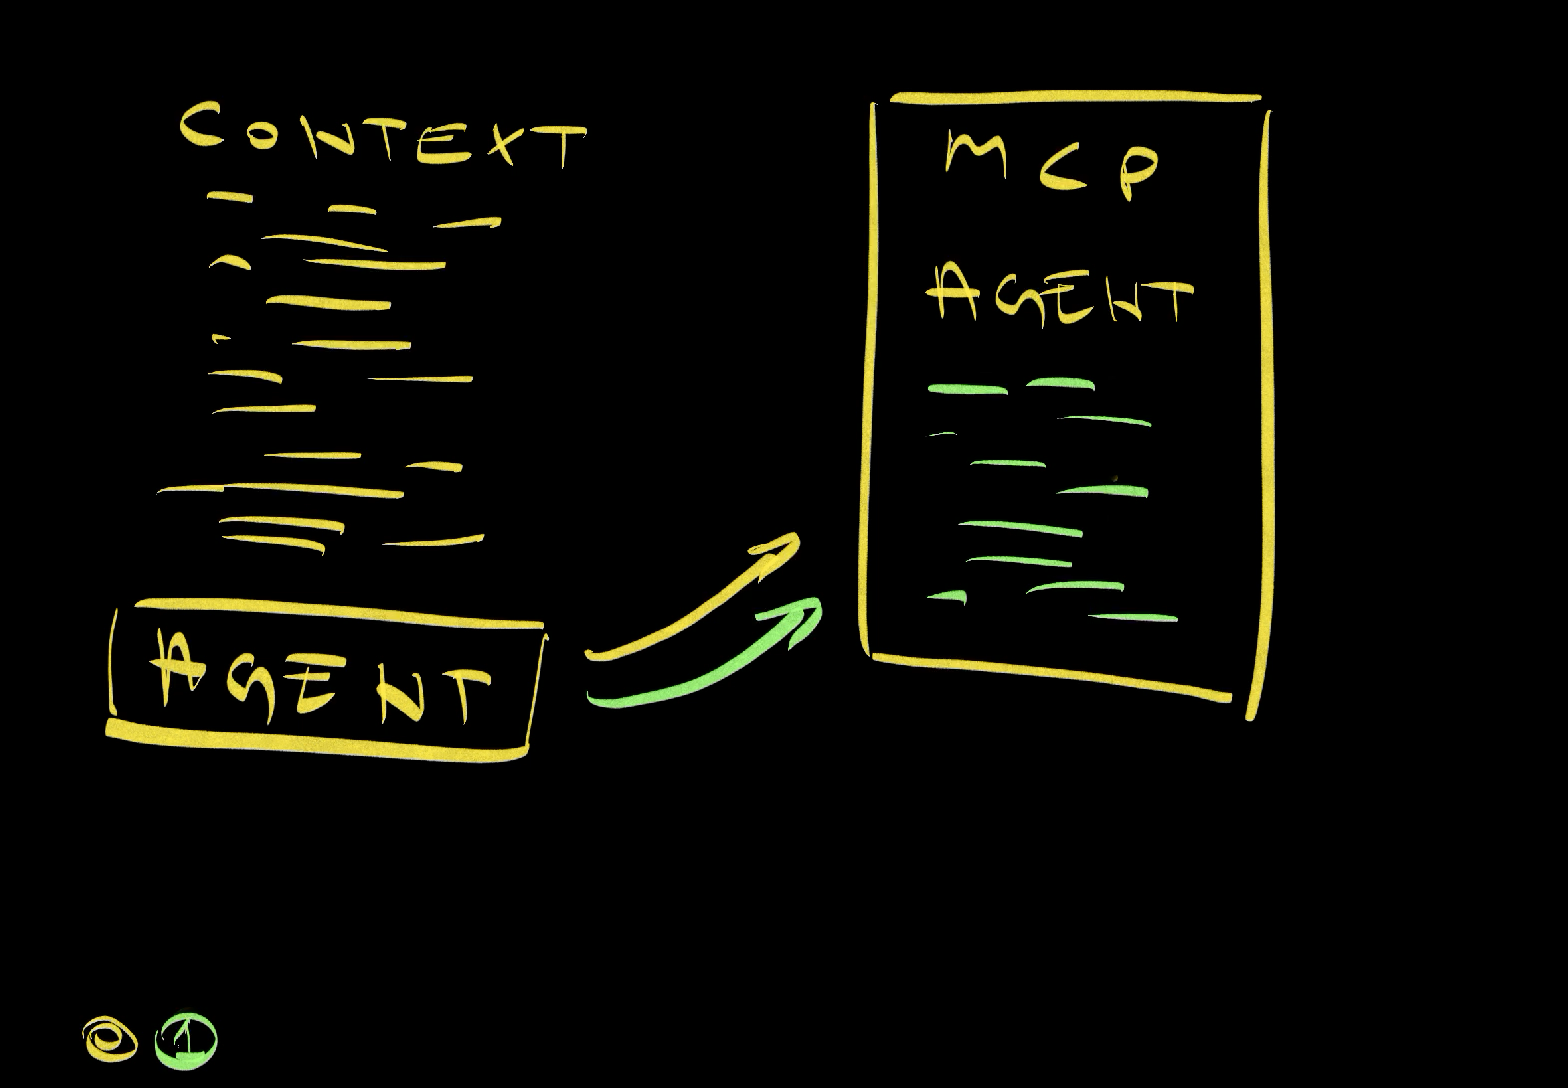 CONTEXT
AGENT
MCP
AGENT
0 1